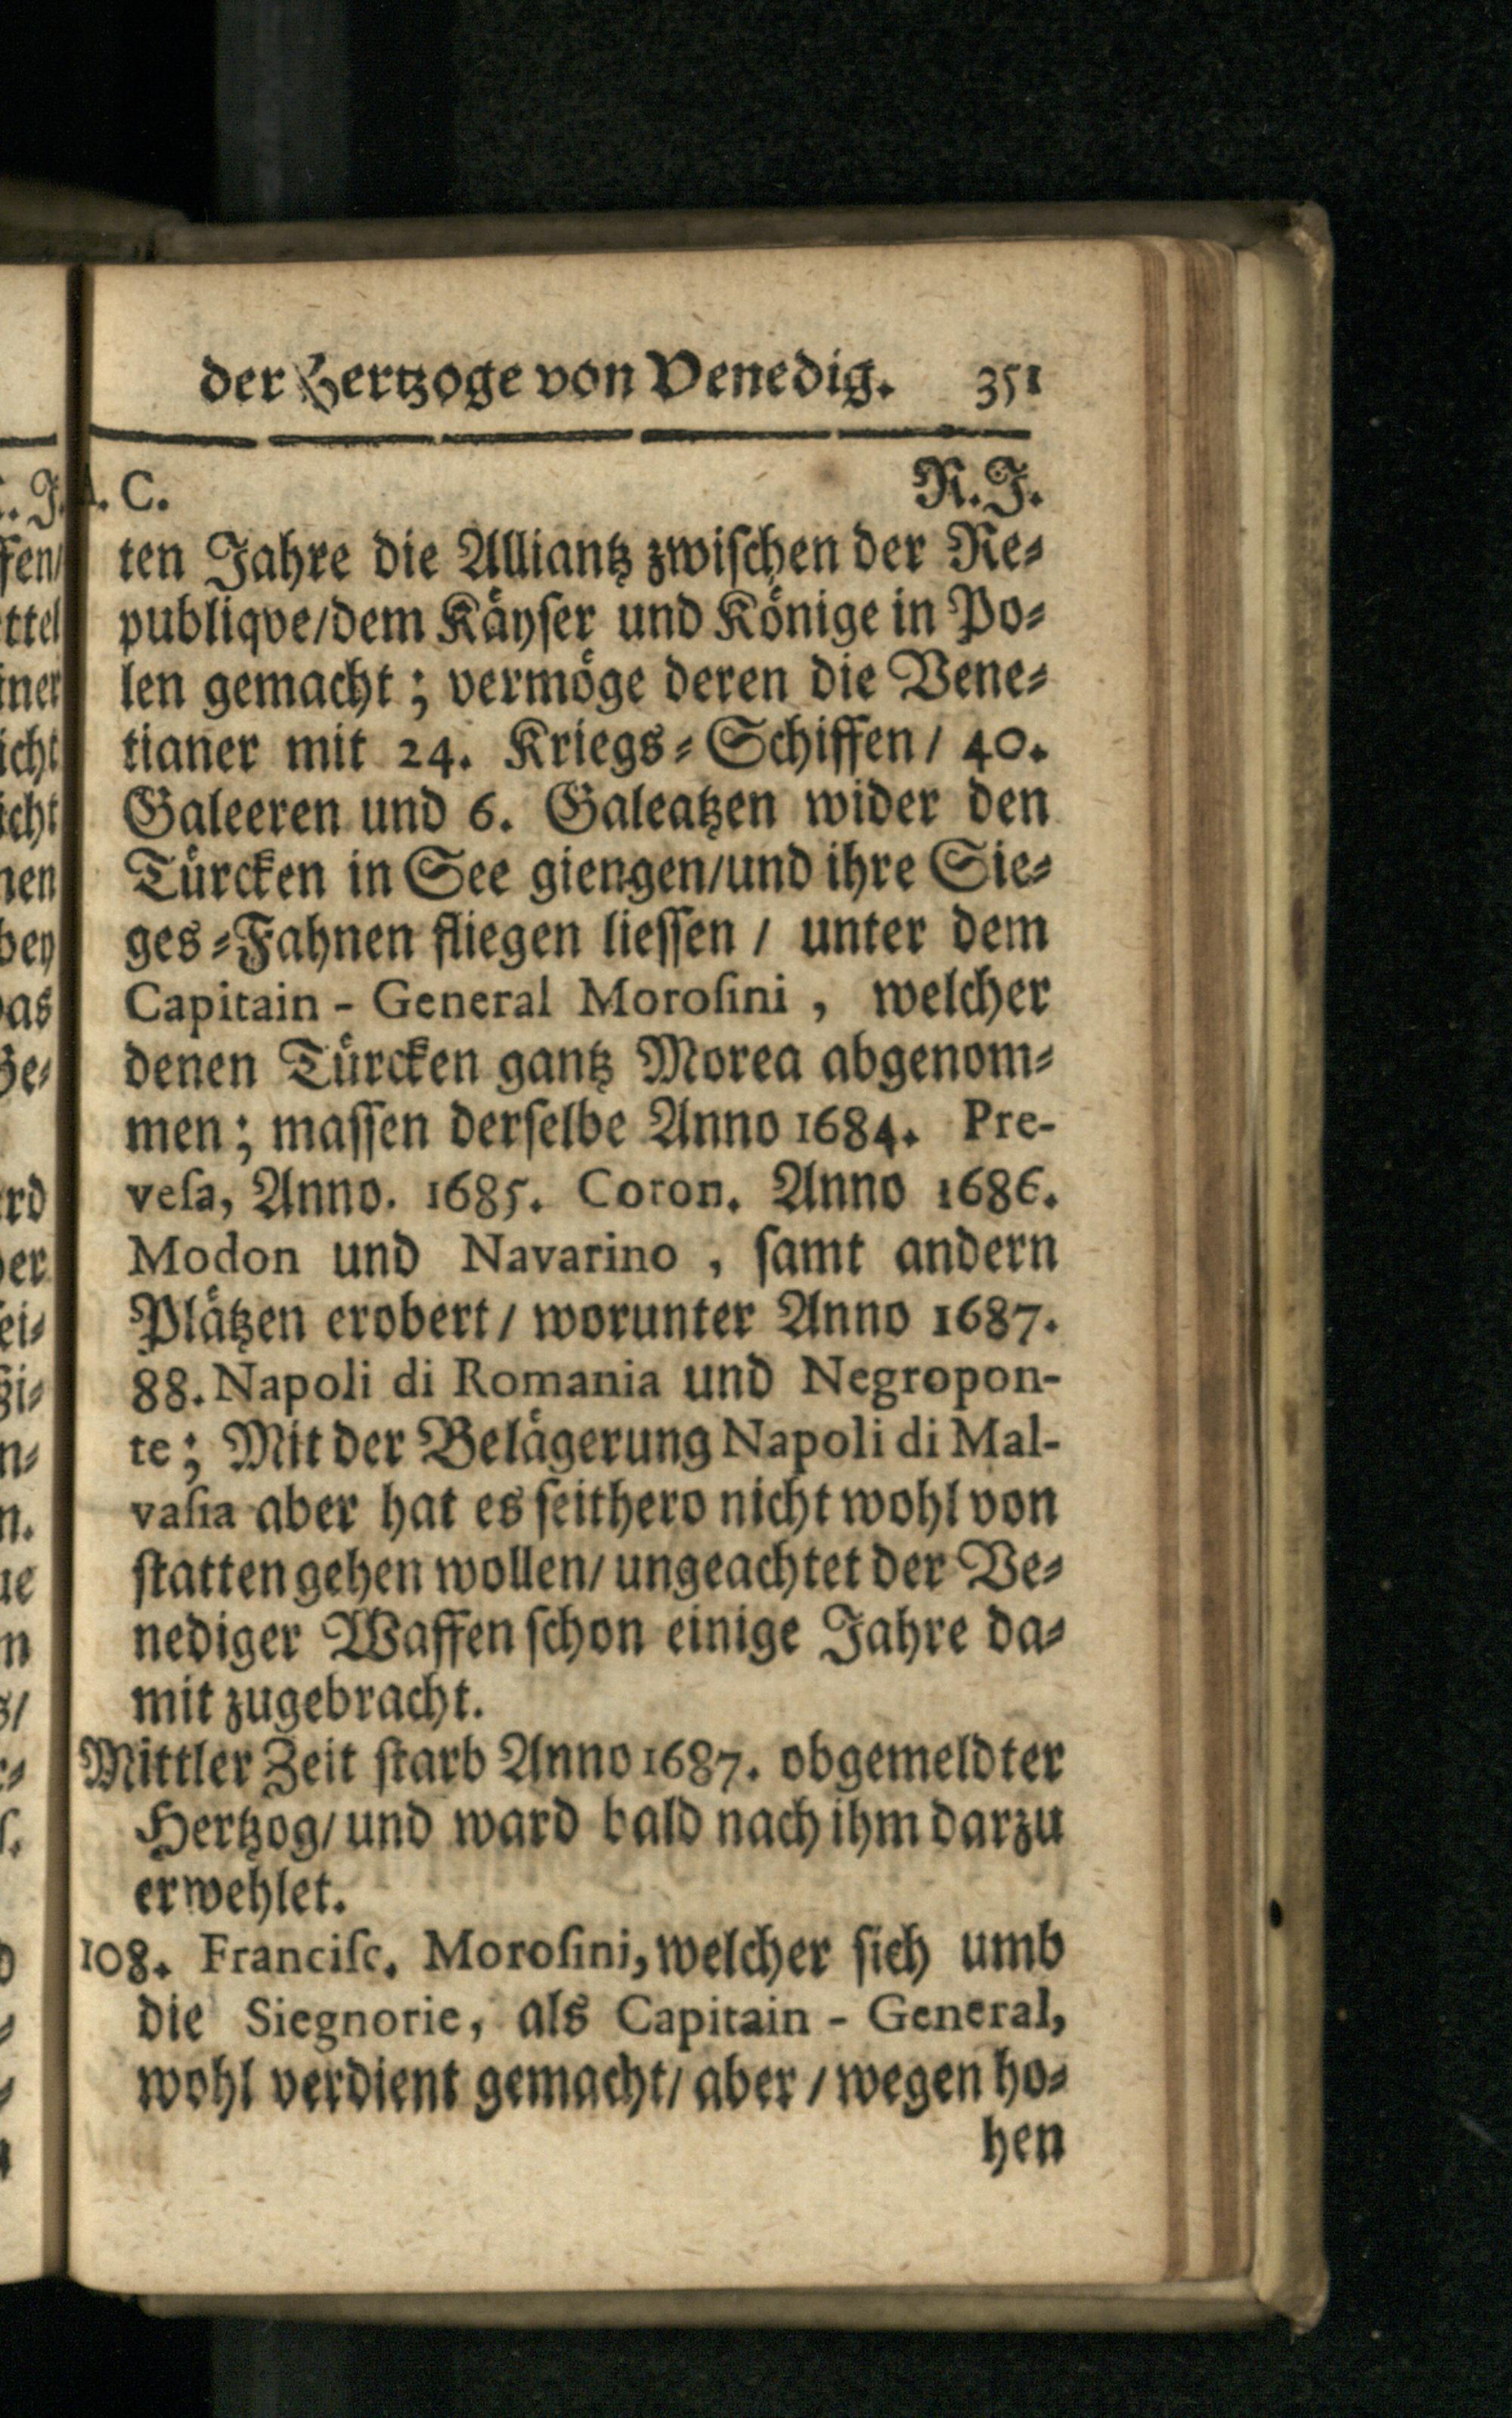 der Hertzoge von Venedig. 351
A. C. R. J.
ten Jahre die Alliantz zwischen der Re⸗
publiqve/dem Kaͤyser und Koͤnige in Po⸗
len gemacht; vermoͤge deren die Vene⸗
tianer mit 24. Kriegs⸗Schiffen/ 40.
Galeeren und 6. Galeatzen wider den
Tuͤrcken in See giengen/und ihre Sie⸗
ges⸗Fahnen fliegen liessen / unter dem
Capitain - General Morosini, welcher
denen Tuͤrcken gantz Morea abgenom⸗
men; massen derselbe Anno 1684. Pre-
vesa, Anno. 1685. Coron. Anno 1686.
Modon und Navarino, samt andern
Plaͤtzen erobert/ worunter Anno 1687.
88. Napoli di Romania und Negropon-
te; Mit der Belaͤgerung Napoli di Mal-
vasia aber hat es seithero nicht wohl von
statten gehen wollen/ ungeachtet der Ve⸗
nediger Waffen schon einige Jahre da⸗
mit zugebracht.
Mittler Zeit starb Anno 1687. obgemeldter
Hertzog/ und ward bald nach ihm darzu
erwehlet.
108. Francisc. Morosini, welcher sich umb
die Siegnorie, als Capitain - General,
wohl verdient gemacht/ aber / wegen ho⸗
hen